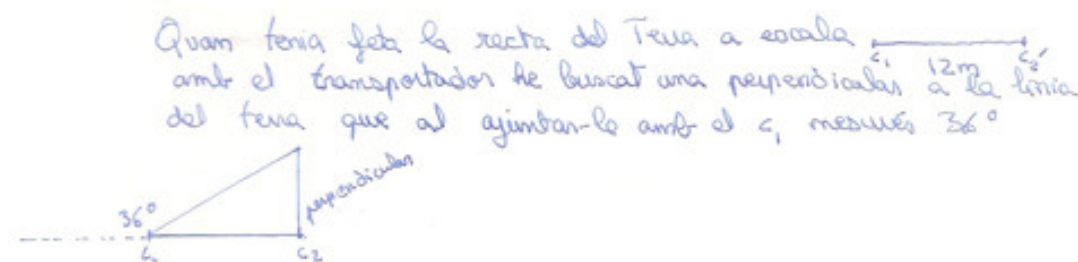 Quan tenia feta la recta del Terra a escala
c₁ 12m c₂'
amb el transportador he buscat una perpendicular a la línia
del terra que al ajuntar-la amb el c₁ mesurés 36°
perpendicular
36°
c₁ c₂